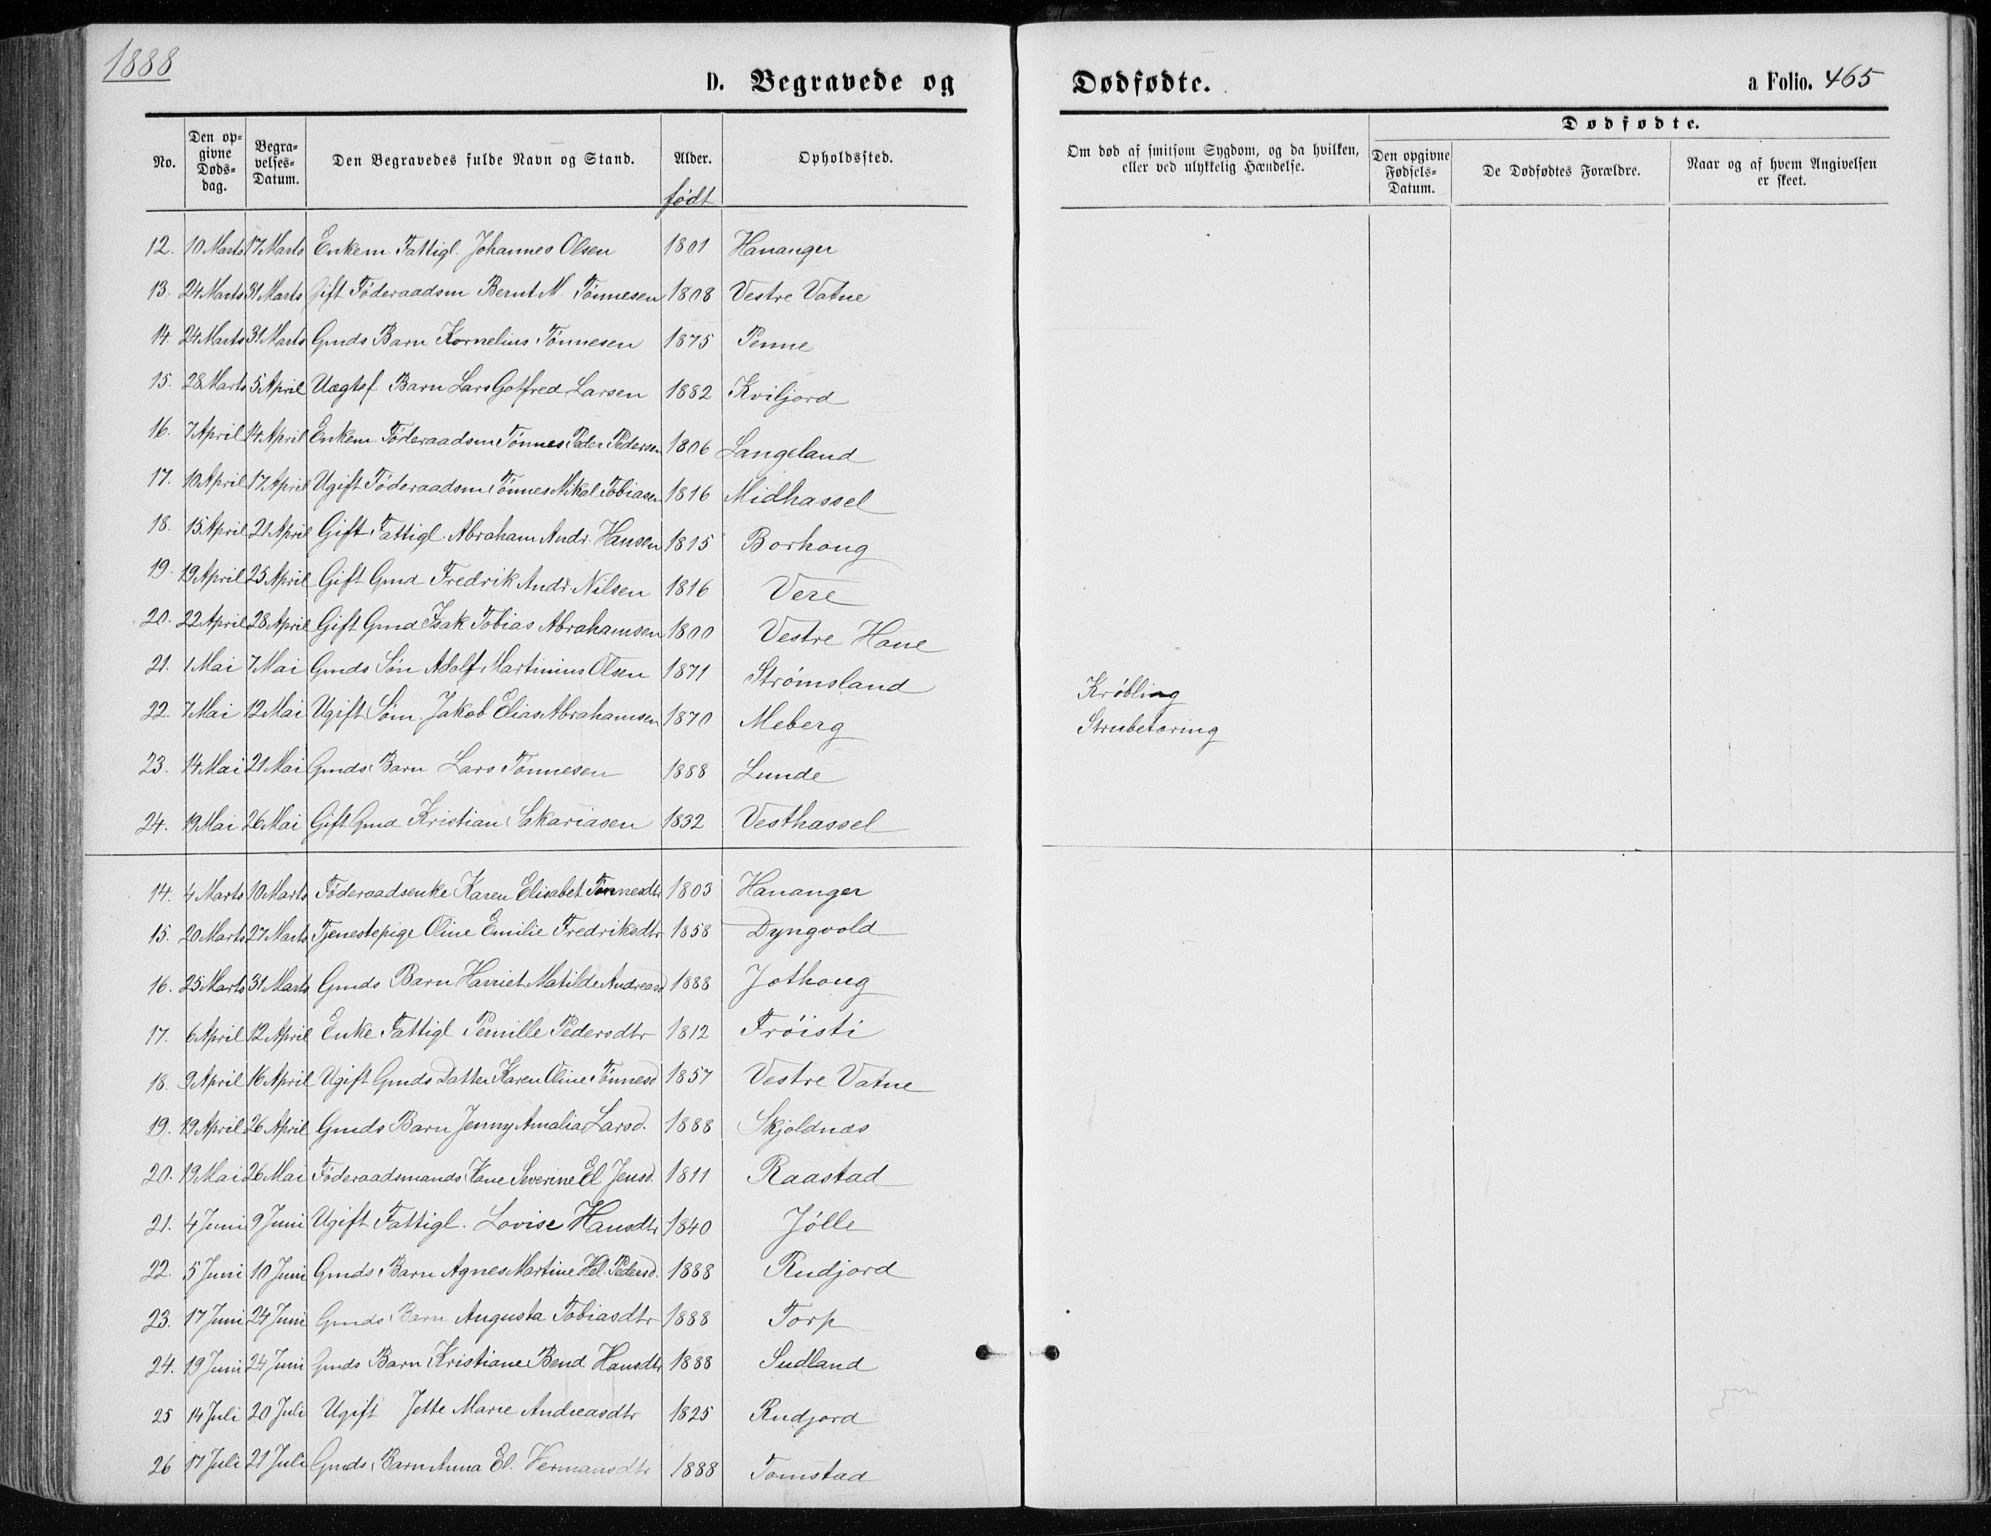 1888
D. Begravede og Dødfødte. a Folio. 465
No. Den opgivne Dødsdag. Begravelses-Datum. Den Begravedes fulde Navn og Stand. Alder. født Opholdssted. Om død af smitsom Sygdom, og da hvilken, eller ved ulykkelig Hændelse. Dødfødte. Den opgivne Fødsels-Datum. De Dødfødtes Forældre. Naar og af hvem Angivelsen er skeet.
12. 10 Marts 17 Marts Enkem. Fattigl. Johannes Olsen 1801 Hananger
13. 24 Marts 31 Marts Gift Föderaadsm Bernt M. Tönnesen 1808 Vestre Vatne
14. 24 Marts 31 Marts Gmds Barn Kornelius Tönnesen 1875 Penne
15. 28 Marts 5 April Uægtef. Barn Lars Gotfred Larsen 1882 Kviljord
16. 7 April 14 April Enkem Föderaadsm Tönnes Peder Pedersen 1806 Langeland
17. 10 April 17 April Ugift Föderaadsm Tönnes Mikal Tobiasen 1816 Midhassel
18. 15 April 21 April Gift Fattigl. Abraham Andr. Hansen 1815 Borhoug
19. 19 April 25 April Gift Gmd Fredrik Andr Nilsen 1816 Vere
20. 22 April 28 April Gift Gmd Isak Tobias Abrahamsen 1800 Vestre Hane
21. 1 Mai 7 Mai Gmds Søn Adolf Martinius Olsen 1871 Strømsland Krøbling
22. 7 Mai 12 Mai Ugift Søm. Jakob Elias Abrahamsen 1870 Meberg Strubetæring
23. 14 Mai 21 Mai Gmds Barn Lars Tönnesen 1888 Lunde
24. 19 Mai 26 Mai Gift Gmd Kristian Sakariasen 1832 Vesthassel
14. 4 Marts 10 Marts Föderaadsenke Karen Elisabet Tönnesdtr 1803 Hananger
15. 20 Marts 27 Marts Tjenestepige Oline Emilie Fredriksdtr 1858 Dyngvold
16. 25 Marts 31 Marts Gmds Barn Harriet Matilde Andreasd 1888 Jothoug
17. 6 April 12 April Enke Fattigl Pernille Pedersdtr 1812 Tröisti
18. 9 April 16 April Ugift Gmds Datter Karen Oline Tönnesd 1857 Vestre Vatne
19. 19 April 26 April Gmds Barn Jenny Amalia Larsd. 1888 Skjoldnæs
20. 19 Mai 26 Mai Föderaadsmands Kone Severine El Jensd. 1811 Raastad
21. 4 Juni 9 Juni Ugift Fattigl. Lovise Hansdtr 1840 Jølle
22. 5 Juni 10 Juni Gmds Barn Agnes Martine Hel. Pedersd. 1888 Rudjord
23. 17 Juni 24 Juni Gmds Barn Augusta Tobiasdtr 1888 Torp
24. 19 Juni 24 Juni Gmds Barn Kristiane Bend Hansdtr 1888 Sudland
25 14 Juli 20 Juli Ugift Jette Marie Andreasdtr 1825 Rudjord
26 17 Juli 21 Juli Gmds Barn Anna El. Vermansdtr 1888 Tomstad